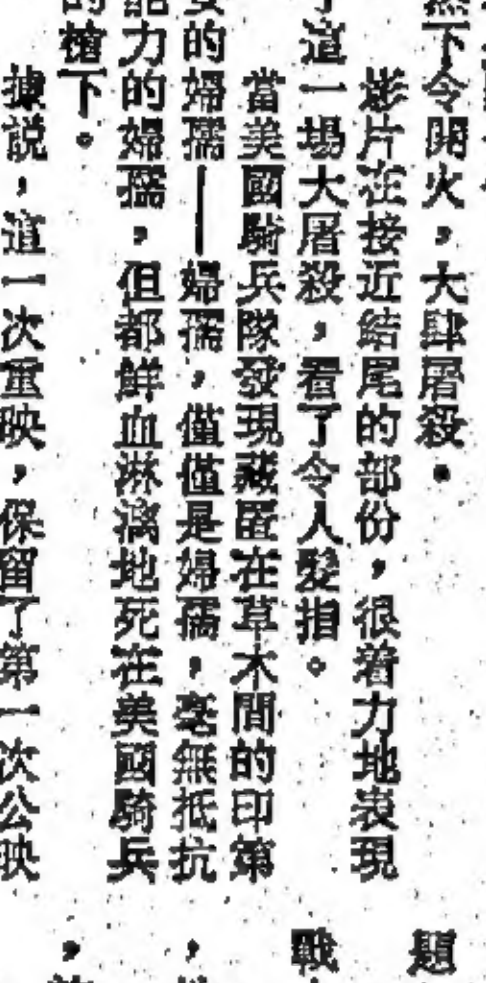 然下令開火，大肆屠殺。
影片在接近結尾的部份，很着力地表現
了這一場大屠殺，看了令人髮指。
當美國騎兵隊發現藏匿在草木間的印第
安的婦孺——婦孺，僅僅是婦孺，毫無抵抗
能力的婦孺，但都鮮血淋漓地死在美國騎兵
的槍下。
據説，這一次重映，保留了第一次公映
題
戰
，
，